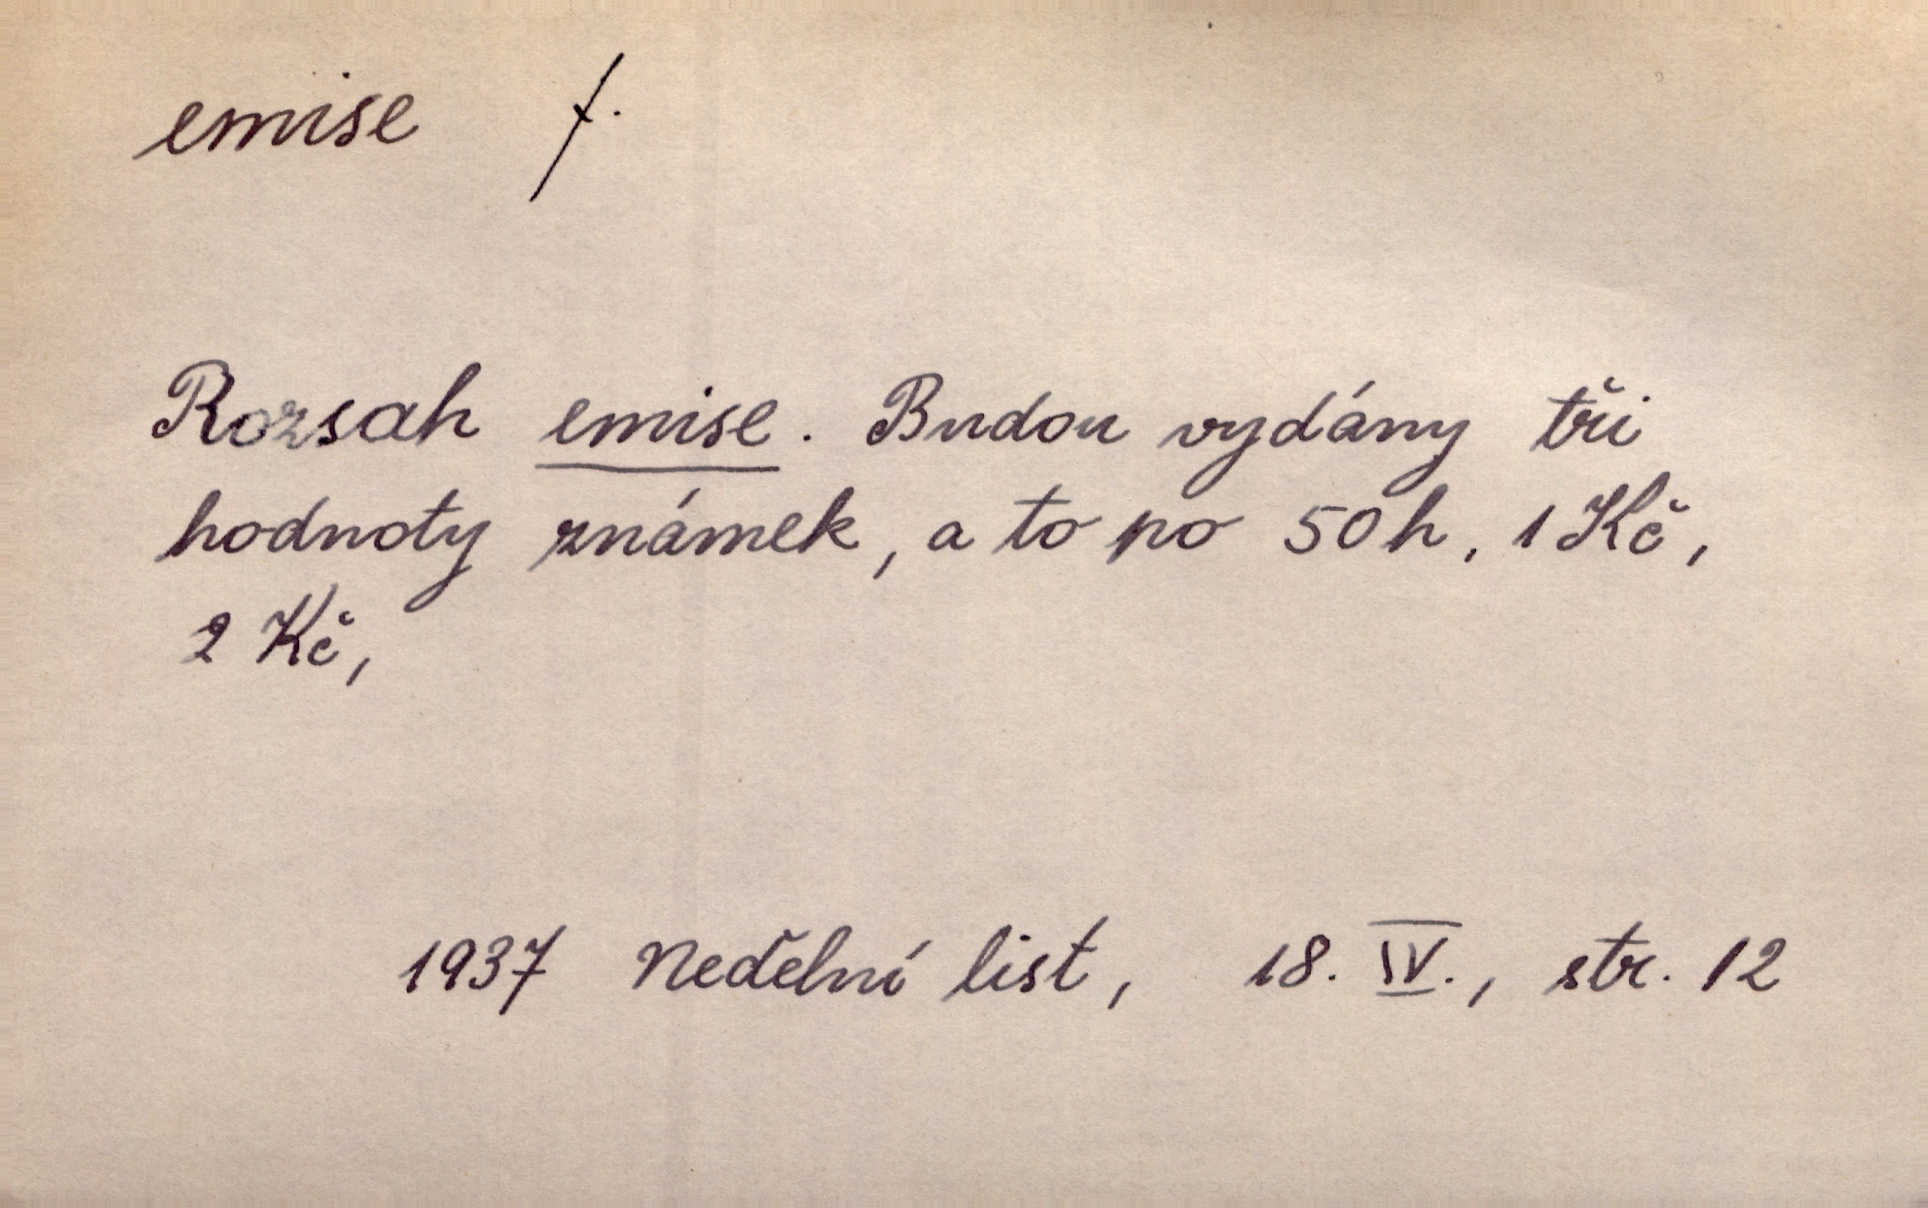 emise f.
Rozsah emise. Budou vydány tři
hodnoty známek, a to po 50 h, 1 Kč,
2 Kč,
1937 Nedělní list, 18. IV., str. 12